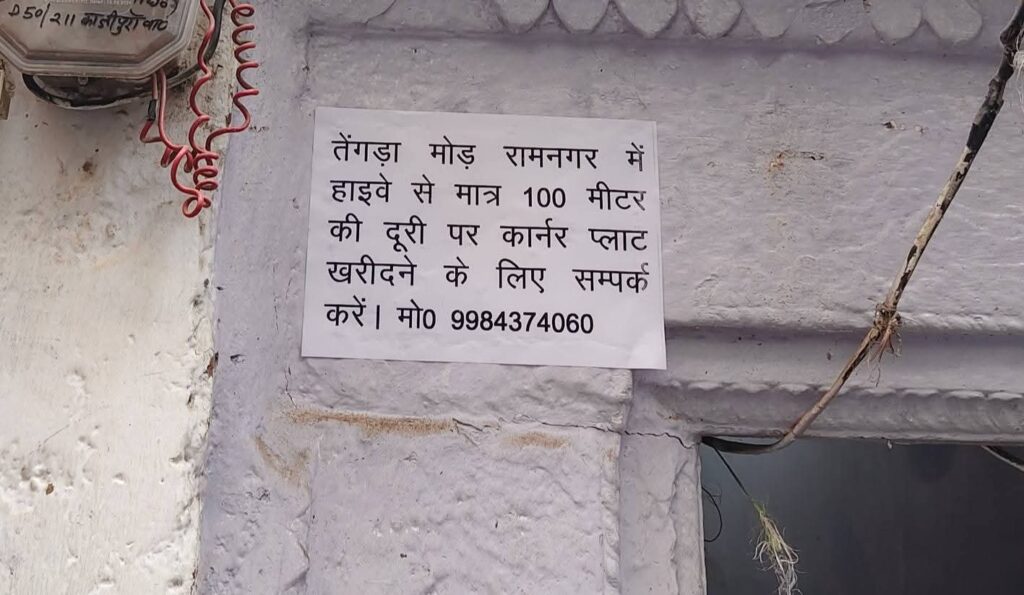 D50/211 काजीपुरा
तेंगड़ा मोड़ रामनगर में
हाइवे से मात्र 100 मीटर
की दूरी पर कार्नर प्लाट
खरीदने के लिए सम्पर्क
करें। मो0 9984374060